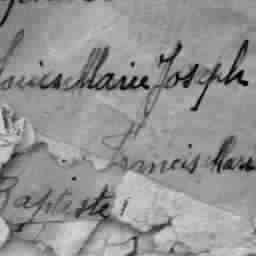 Louis Marie Joseph
Francis Marie
Baptiste